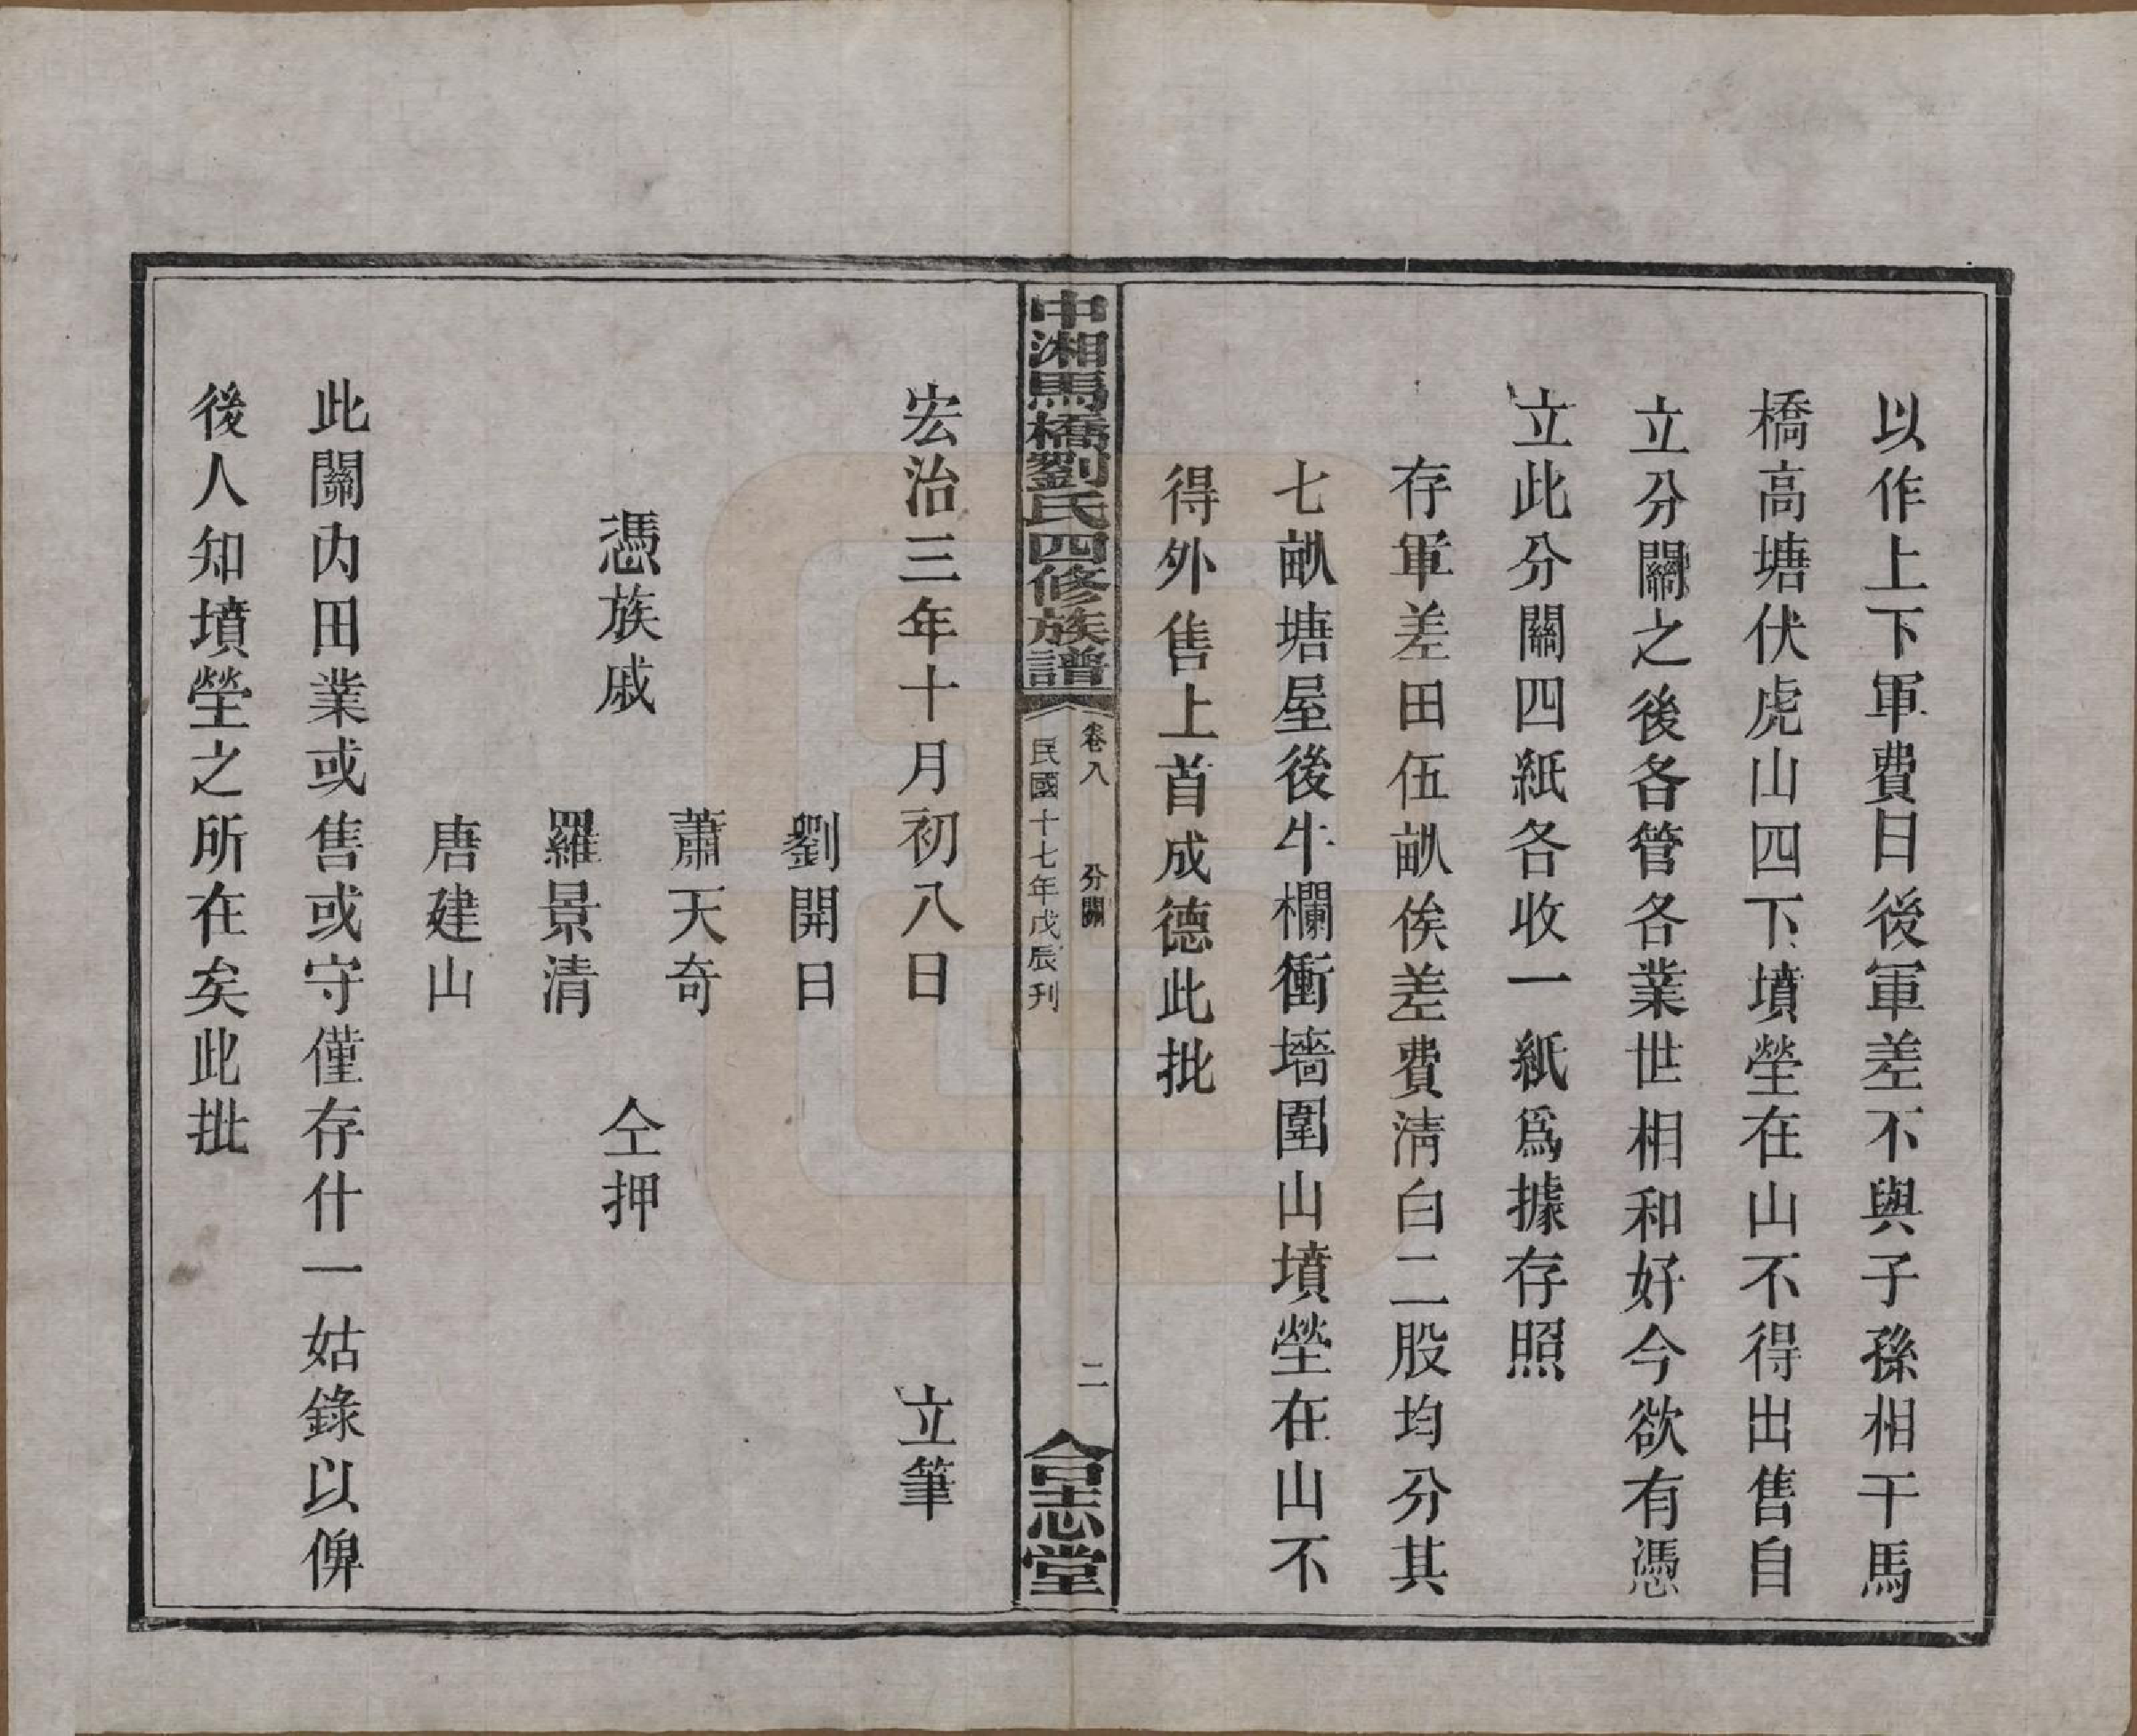 以作上下軍費日後軍差不與子孫相干馬
橋高塘伏虎山四下墳塋在山不得出售自
立分關之後各管各業世相和好今欲有憑
立此分關四紙各收一紙爲據存照
存軍差田伍畝俟差費清白二股均分其
七畝塘屋後牛欄衝墻圍山墳塋在山不
得外售上首成德此批
中湘馬橋劉氏四修族譜
卷八 分關 二
民國十七年戊辰刊
合志堂
宏治三年十月初八日 立筆
劉開日
蕭天奇
憑族戚 仝押
羅景清
唐建山
此關内田業或售或守僅存什一姑錄以俾
後人知墳塋之所在矣此批